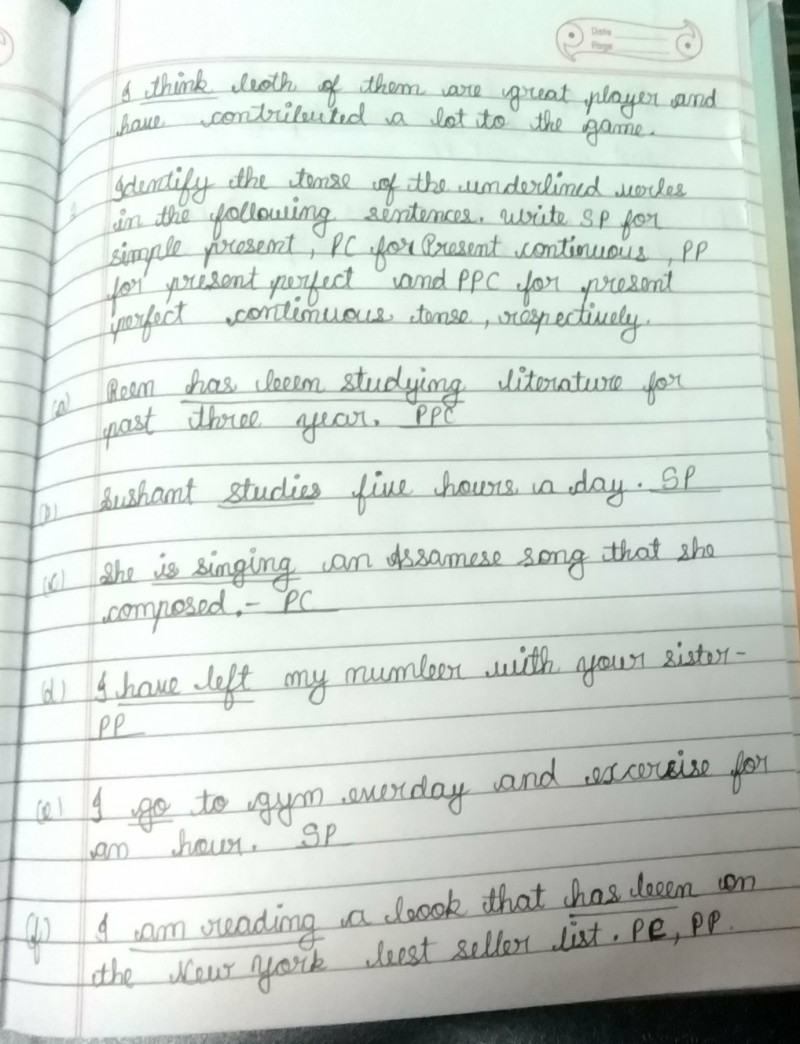 Date
Page
I think both of them are great player and
have contributed a lot to the game.
Identify the tense of the underlined verbs
in the following sentences. Write SP for
simple present, PC for Present continuous, PP
for present perfect and PPC for present
perfect continuous tense, respectively.
(a) Reen has been studying literature for
past three year. PPC
(b) Sushant studies five hours a day. SP
(c) She is singing an Assamese song that she
composed.- PC
(d) I have left my number with your sister-
PP
(e) I go to gym everday and excercise for
an hour. SP
(f) I am reading a book that has been on
the New York best seller list. PC, PP.